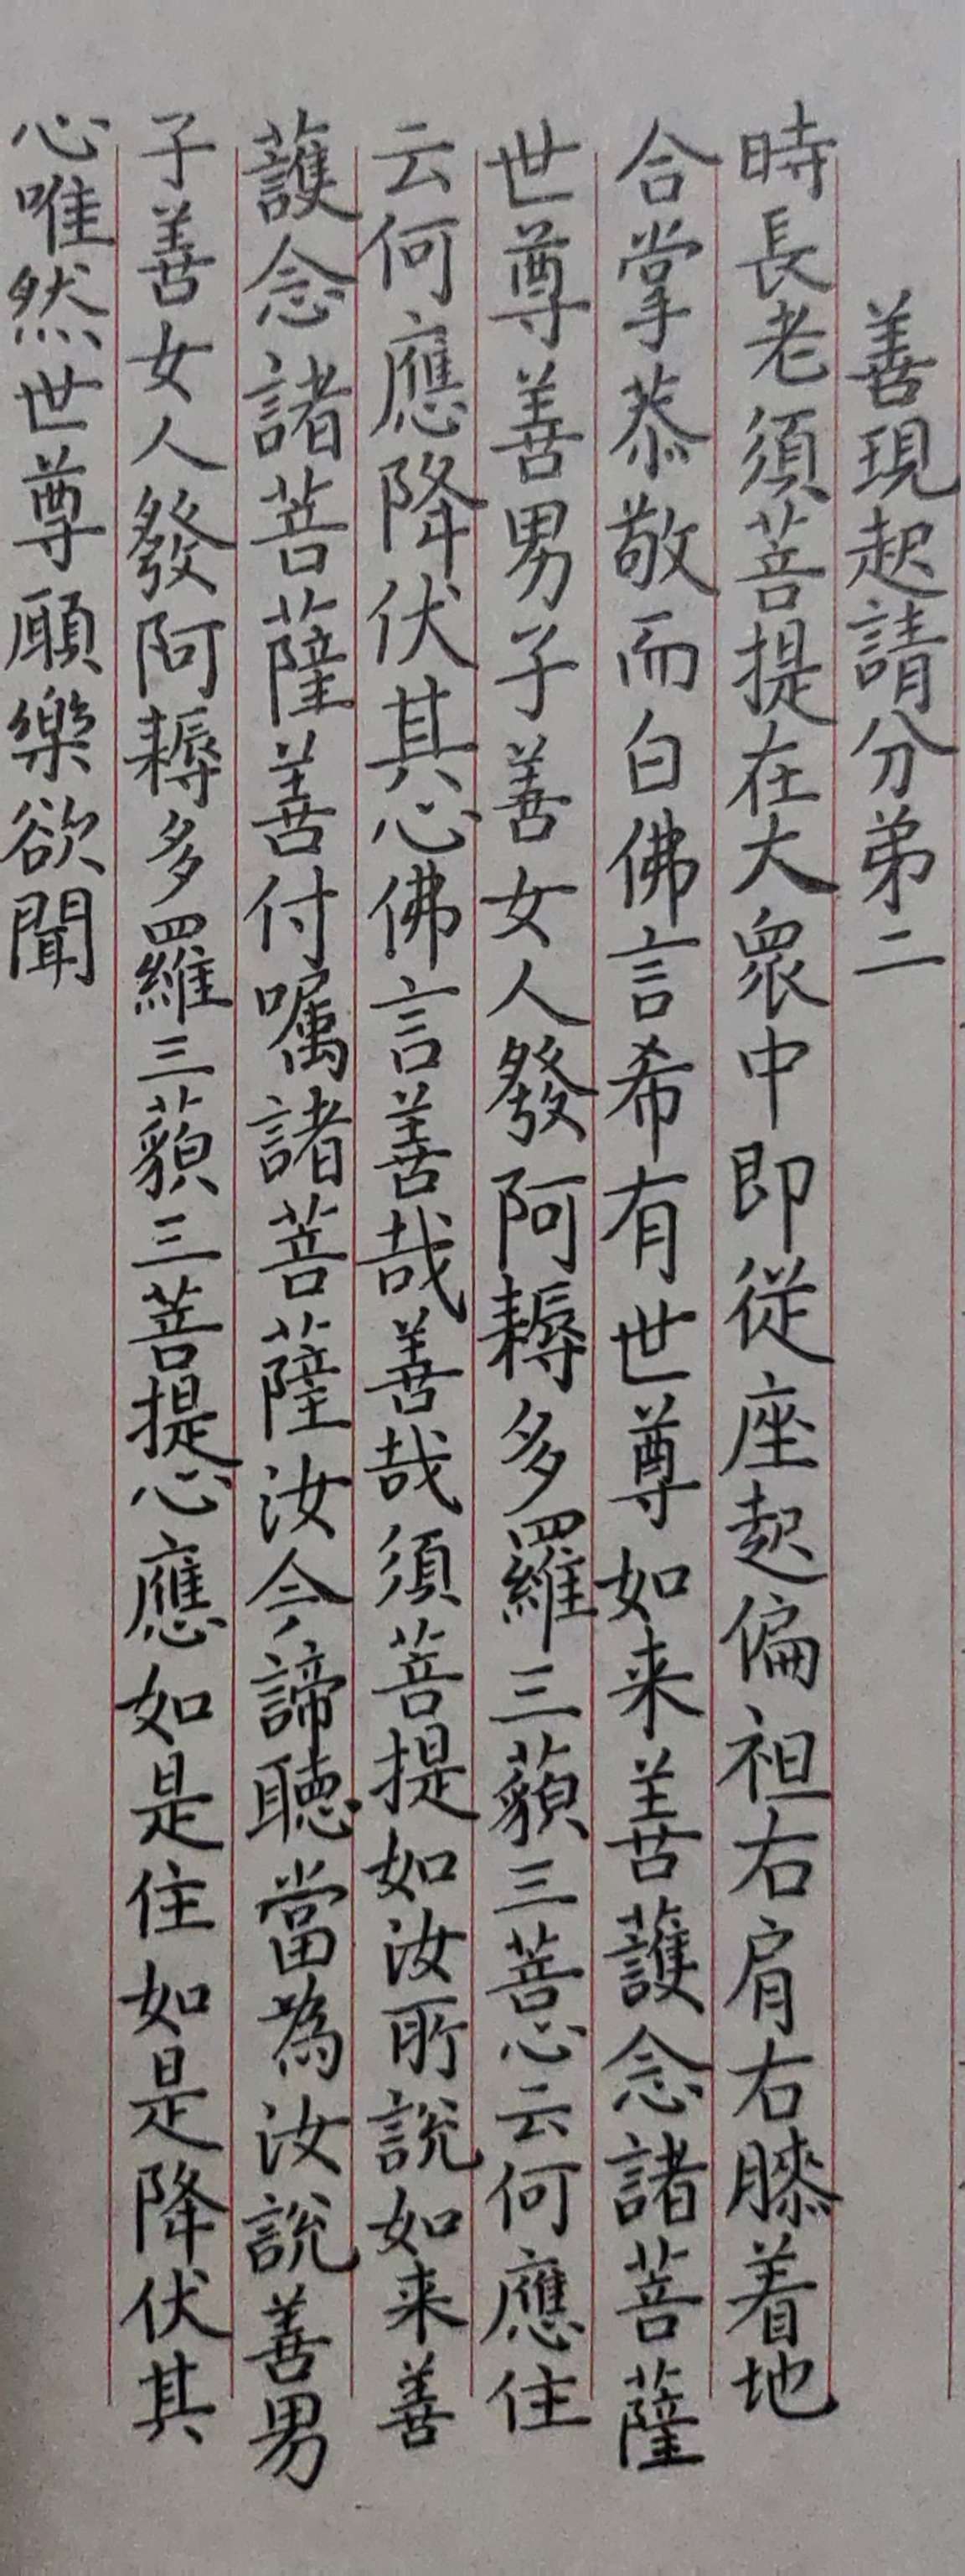 善現起請分弟二
時長老須菩提在大眾中即從座起偏袒右肩右膝着地
合掌恭敬而白佛言希有世尊如来善護念諸菩薩
世尊善男子善女人發阿耨多羅三藐三菩心云何應住
云何應降伏其心佛言善哉善哉須菩提如汝所說如来善
護念諸菩薩善付囑諸菩薩汝今諦聽當為汝說善男
子善女人發阿耨多羅三藐三菩提心應如是住如是降伏其
心唯然世尊願樂欲聞